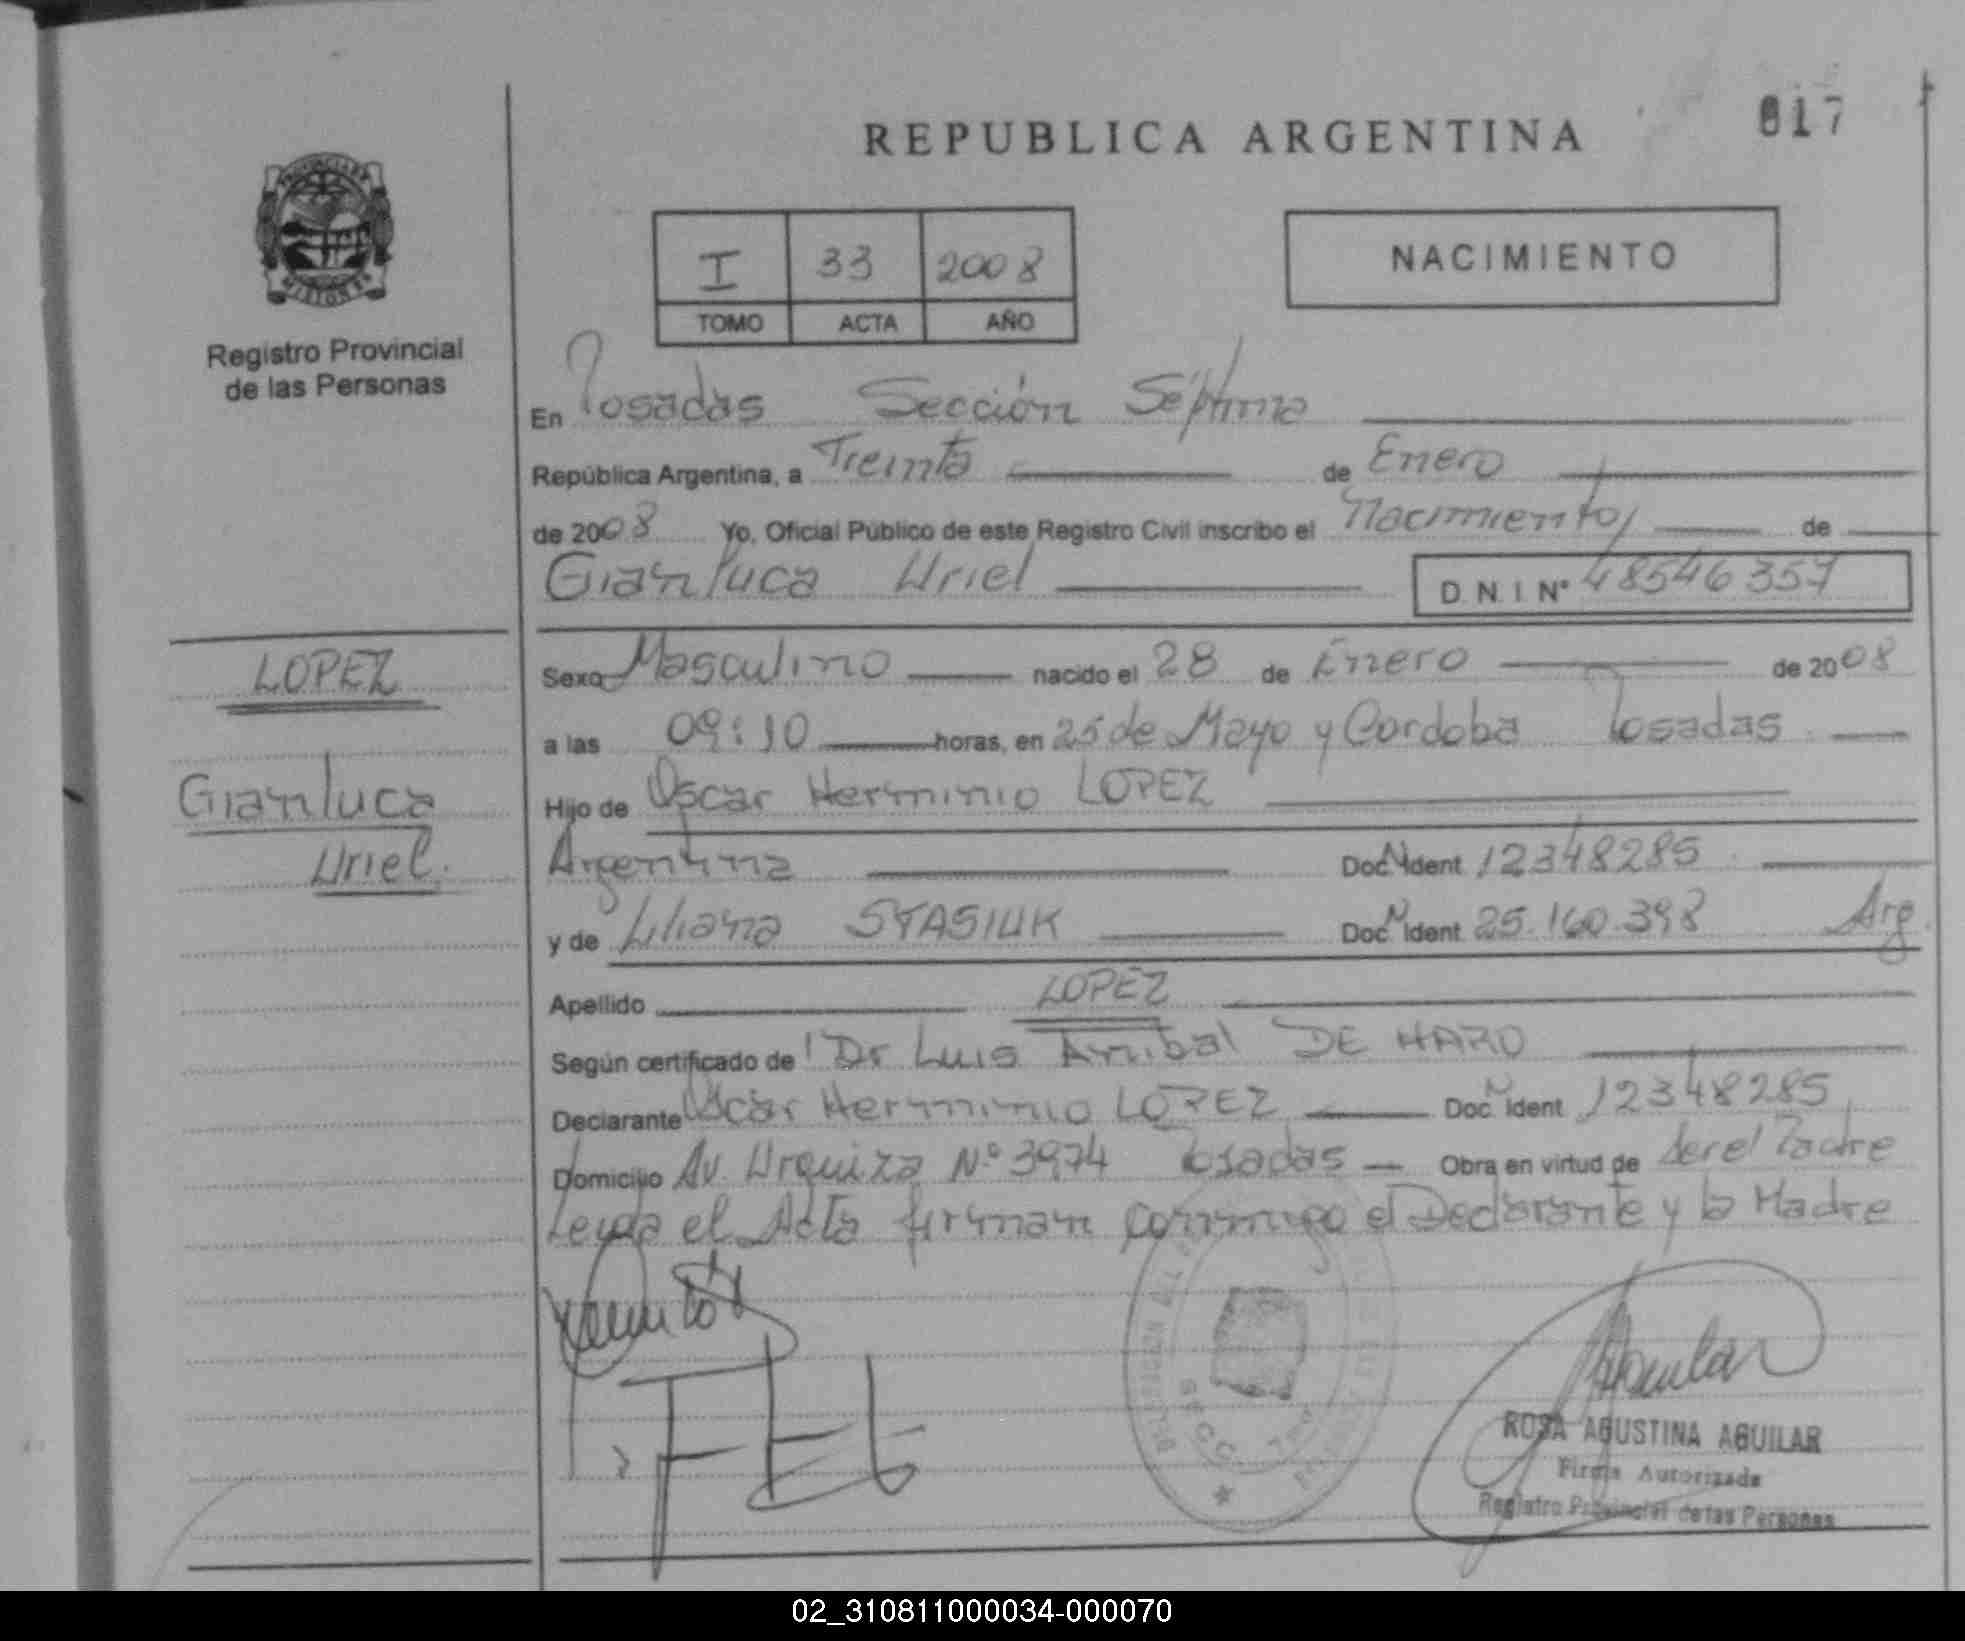 REPUBLICA ARGENTINA
017
PROVINCIA DE
MISIONES
Registro Provincial
de las Personas
I 33 2008
TOMO ACTA AÑO
NACIMIENTO
En Posadas Sección Séptima
República Argentina, a Treinta de Enero
de 2008 Yo, Oficial Público de este Registro Civil inscribo el Nacimiento, de
Gianluca Uriel D.N.I Nº 48546357
LOPEZ
Gianluca
Uriel.
Sexo Masculino nacido el 28 de Enero de 2008
a las 09:10 horas, en 25 de Mayo y Cordoba Posadas
Hijo de Oscar Herminio LOPEZ
Argentina Doc. N Ident 12348285
y de Liliana STASIUK Doc. N Ident 25.160.398 Arg.
Apellido LOPEZ
Según certificado de Dr Luis Anibal DE HARO
Declarante Oscar Herminio LOPEZ Doc. N Ident 12348285
Domicilio Av. Urquiza Nº 3974 Posadas Obra en virtud de ser el Padre
Leyda el Acta firman conmigo el Declarante y la Madre
SECC. 7ma
ROSA AGUSTINA AGUILAR
Firma Autorizada
Registro Provincial de las Personas
02_310811000034-000070